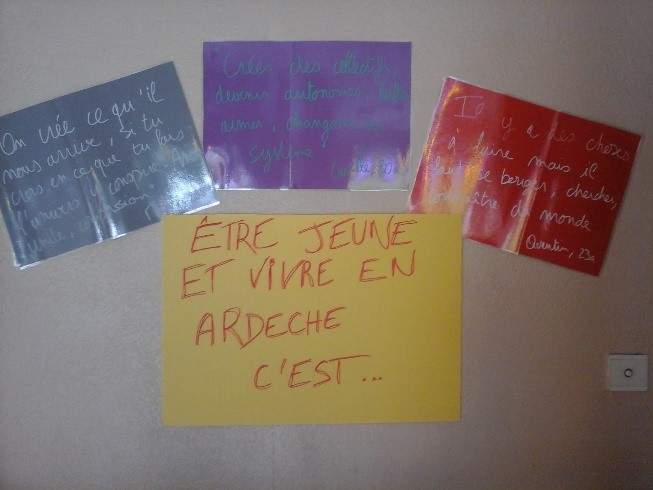 On crée ce qu'il
nous arrive, si tu
crois en ce que tu fais
l'univers
Créer des collectifs
devenir autonomes,
aimer,
système
Il y a des choses
à faire mais il
faut se bouger, chercher,
connaître du monde
Quentin, 23a
ÊTRE JEUNE
ET VIVRE EN
ARDECHE
C'EST...